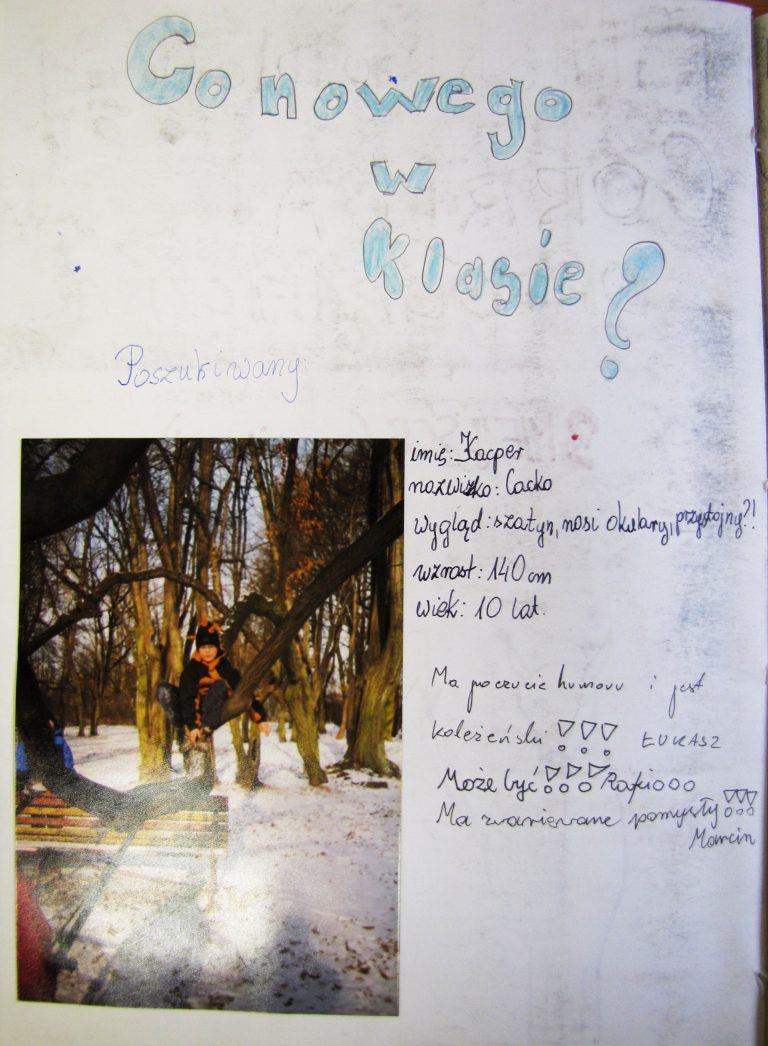 Co nowego
w
klasie?
Poszukiwany:
imię: Kacper
nazwizko: Cacko
wygląd: szatyn, nosi okulary, przystojny?!
wzrost: 140 cm
wiek: 10 lat.
Ma poczucie humoru i jest
koleżeński !!! ŁUKASZ
Może być !!! Rafi...
Ma zwariowane pomysły !!!
Marcin